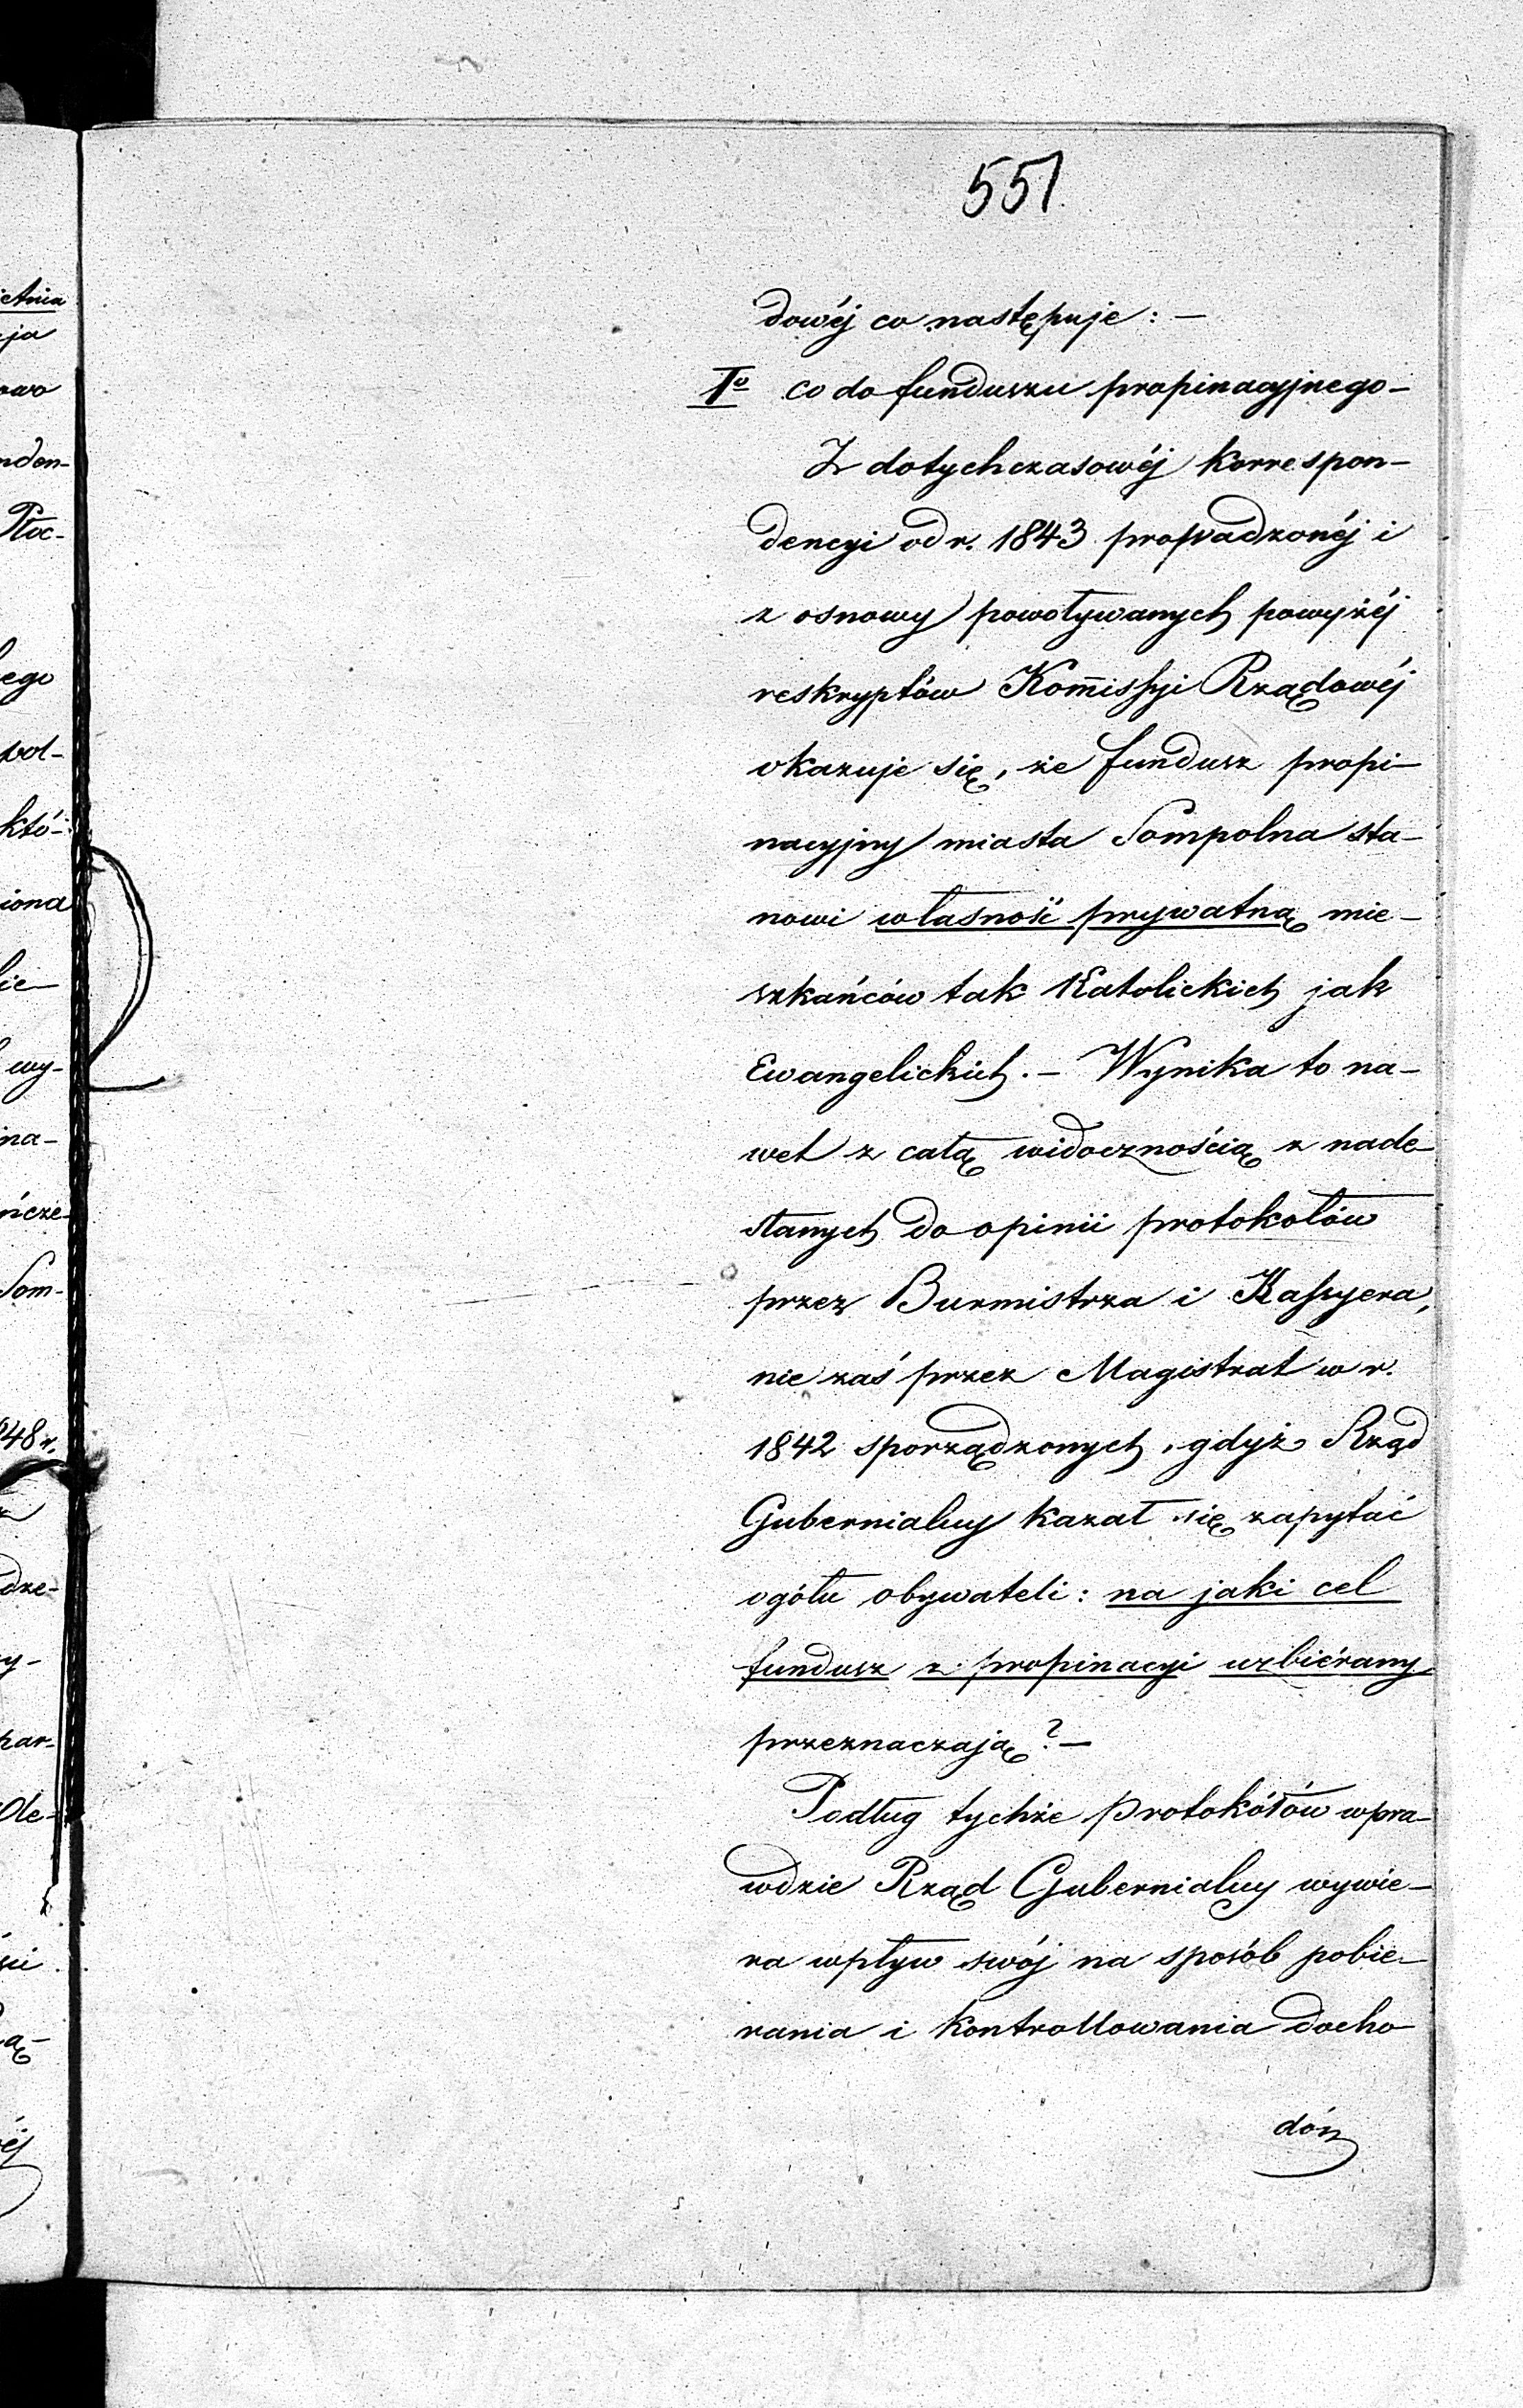 551.
dowéj co następuje: —
Io co do funduszu propinacyjnego —
Z dotychczasowéj korrespon-
dencyi od r. 1843 prowadzonéj i
z osnowy powoływanych powyżéj
reskryptów Kom̅issyi Rządowéj
okazuje się, że fundusz propi-
nacyjny miasta Sompolna sta-
nowi własność prywatną mie-
szkańców tak Katolickich jak
Ewangelickich. — Wynika to na-
wet z całą widocznością z nade-
słanych do opinii protokołów
przez Burmistrza i Kassyera,
nie zaś przez Magistrat w r.
1842 sporządzonych, gdyż Rząd
Gubernialny kazał się zapytać
ogółu obywateli: na jaki cel
fundusz z propinacyi uzbiérany
przeznaczają? —
Podług tychże protokółów wpra-
wdzie Rząd Gubernialny wywie-
ra wpływ swój na sposób pobie-
rania i kontrollowania docho-
dów
ietnia
ja
owo
nden-
Płoc-
ego
pol-
któ-
iona
lie
wy-
na-
ńcze-
Som-
848 r.
dze-
y-
par-
ole-
ą-
éj